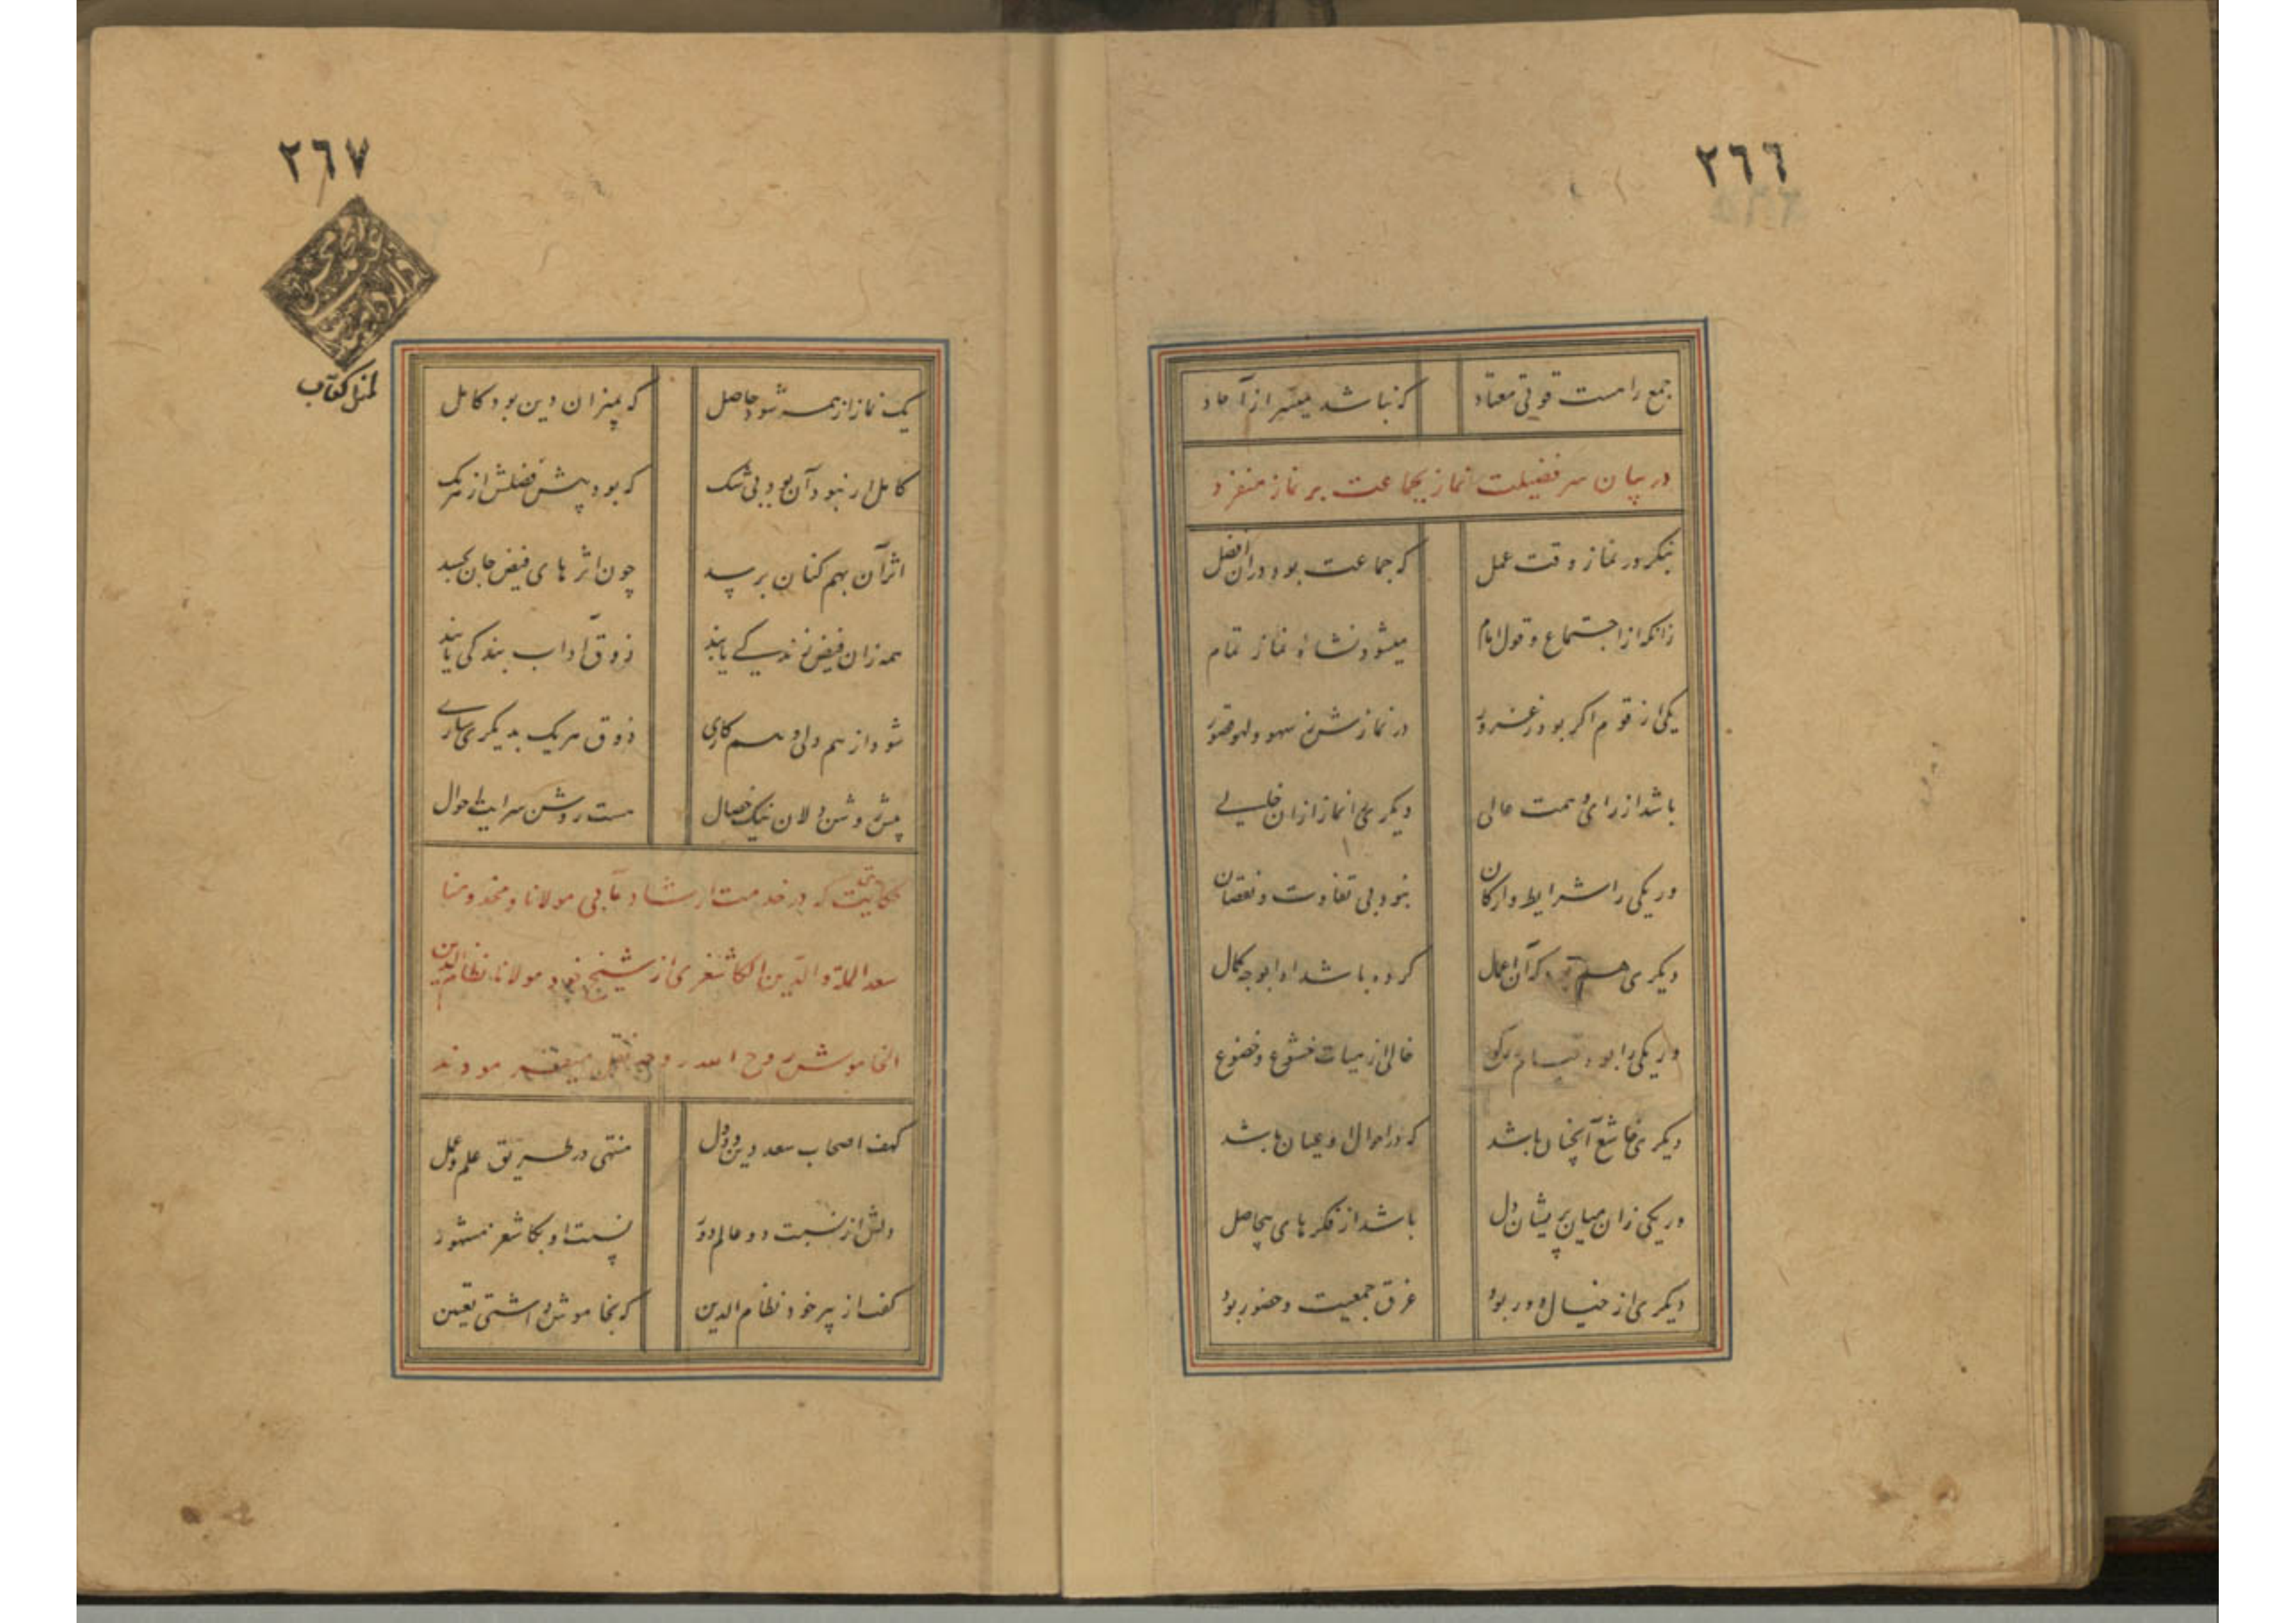 ٢٦٦
جمع را هست قوتی معتاد که نباشد میسر از آحاد
در بیان سر فضیلت نماز بجماعت بر نماز منفرد
بنکر در نماز وقت عمل که جماعت بود در ان افضل
زانکه از اجتماع و قول امام میشود نشاۀ نماز تمام
یکی از قوم اکر بود ز غرور در نمازش ز سهو و لهو قصور
باشد از رای و همت عالی دیکری را نماز ازان خالی
ور یکی را شرایط و ارکان نبود بی تفاوت و نقصان
دیکری هم بود که آن اعمال کرده باشد ادا بوجه کمال
ور یکی را بود قیام رکوع خالی از هیات خشوع و خضوع
دیکری خاشع آنچنان باشد که در احوال او عیان باشد
ور یکی زان میان پریشان دل باشد از فکرهای بیحاصل
دیکری از خیال دور بود غرق جمعیت و حضور بود
٢٦٧
یک نماز از همه شود حاصل که بمیزان دین بود کامل
کامل ار نبود آن بود بی شک که بود بیش فضلش از هر یک
اثر آن بهمکنان برسد چون اثرهای فیض جان بجسد
همه زان فیض زندکی یابند ذوق آداب بندکی یابند
شود از هم دلی و هم کاری ذوق هر یک بدیکری ساری
پیش روشن دلان نیک خصال هست روشن سرایت احوال
حکایتی که در خدمت ارشاد مآبی مولانا و مخدومنا
سعد الملة و الدین الکاشغری از شیخ خود مولانا نظام الدین
الخاموش روح الله روحه نقل میفرمودند
کهف اصحاب سعد دین و دول منتهی در طریق علم و عمل
دلش از نسبت دو عالم دور نسبت او بکاشغر مشهور
کفت از پیر خود نظام الدین که بخاموش داشتی تعیین